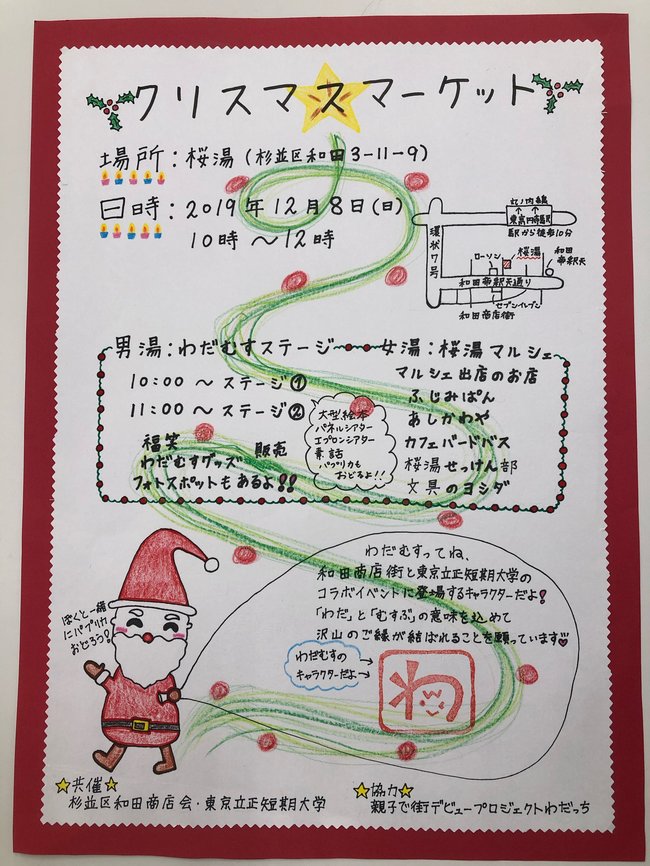 クリスマスマーケット
場所：桜湯（杉並区和田3-11-9）
日時：2019年12月8日(日)
10時～12時
丸ノ内線
東高円寺駅
駅から徒歩10分
環状7号
ローソン
桜湯
和田
帝釈天
和田帝釈天通り
セブンイレブン
和田商店街
男湯：わだむすステージ
10:00 ～ ステージ①
11:00 ～ ステージ②
大型絵本
パネルシアター
エプロンシアター
素話
パプリカも
おどるよ!!
福笑
わだむすグッズ
販売
フォトスポットもあるよ!!
女湯：桜湯マルシェ
マルシェ出店のお店
ふじみぱん
あしかわや
カフェバードバス
桜湯せっけん部
文具のヨシダ
ぼくと一緒
にパプリカ
おどろう!
わだむすってね、
和田商店街と東京立正短期大学の
コラボイベントに登場するキャラクターだよ!
「わだ」と「むすぶ」の意味を込めて
沢山のご縁が結ばれることを願っています♡
わだむすの
キャラクターだよ
わ
☆共催☆
杉並区和田商店会・東京立正短期大学
☆協力☆
親子で街デビュープロジェクトわだっち